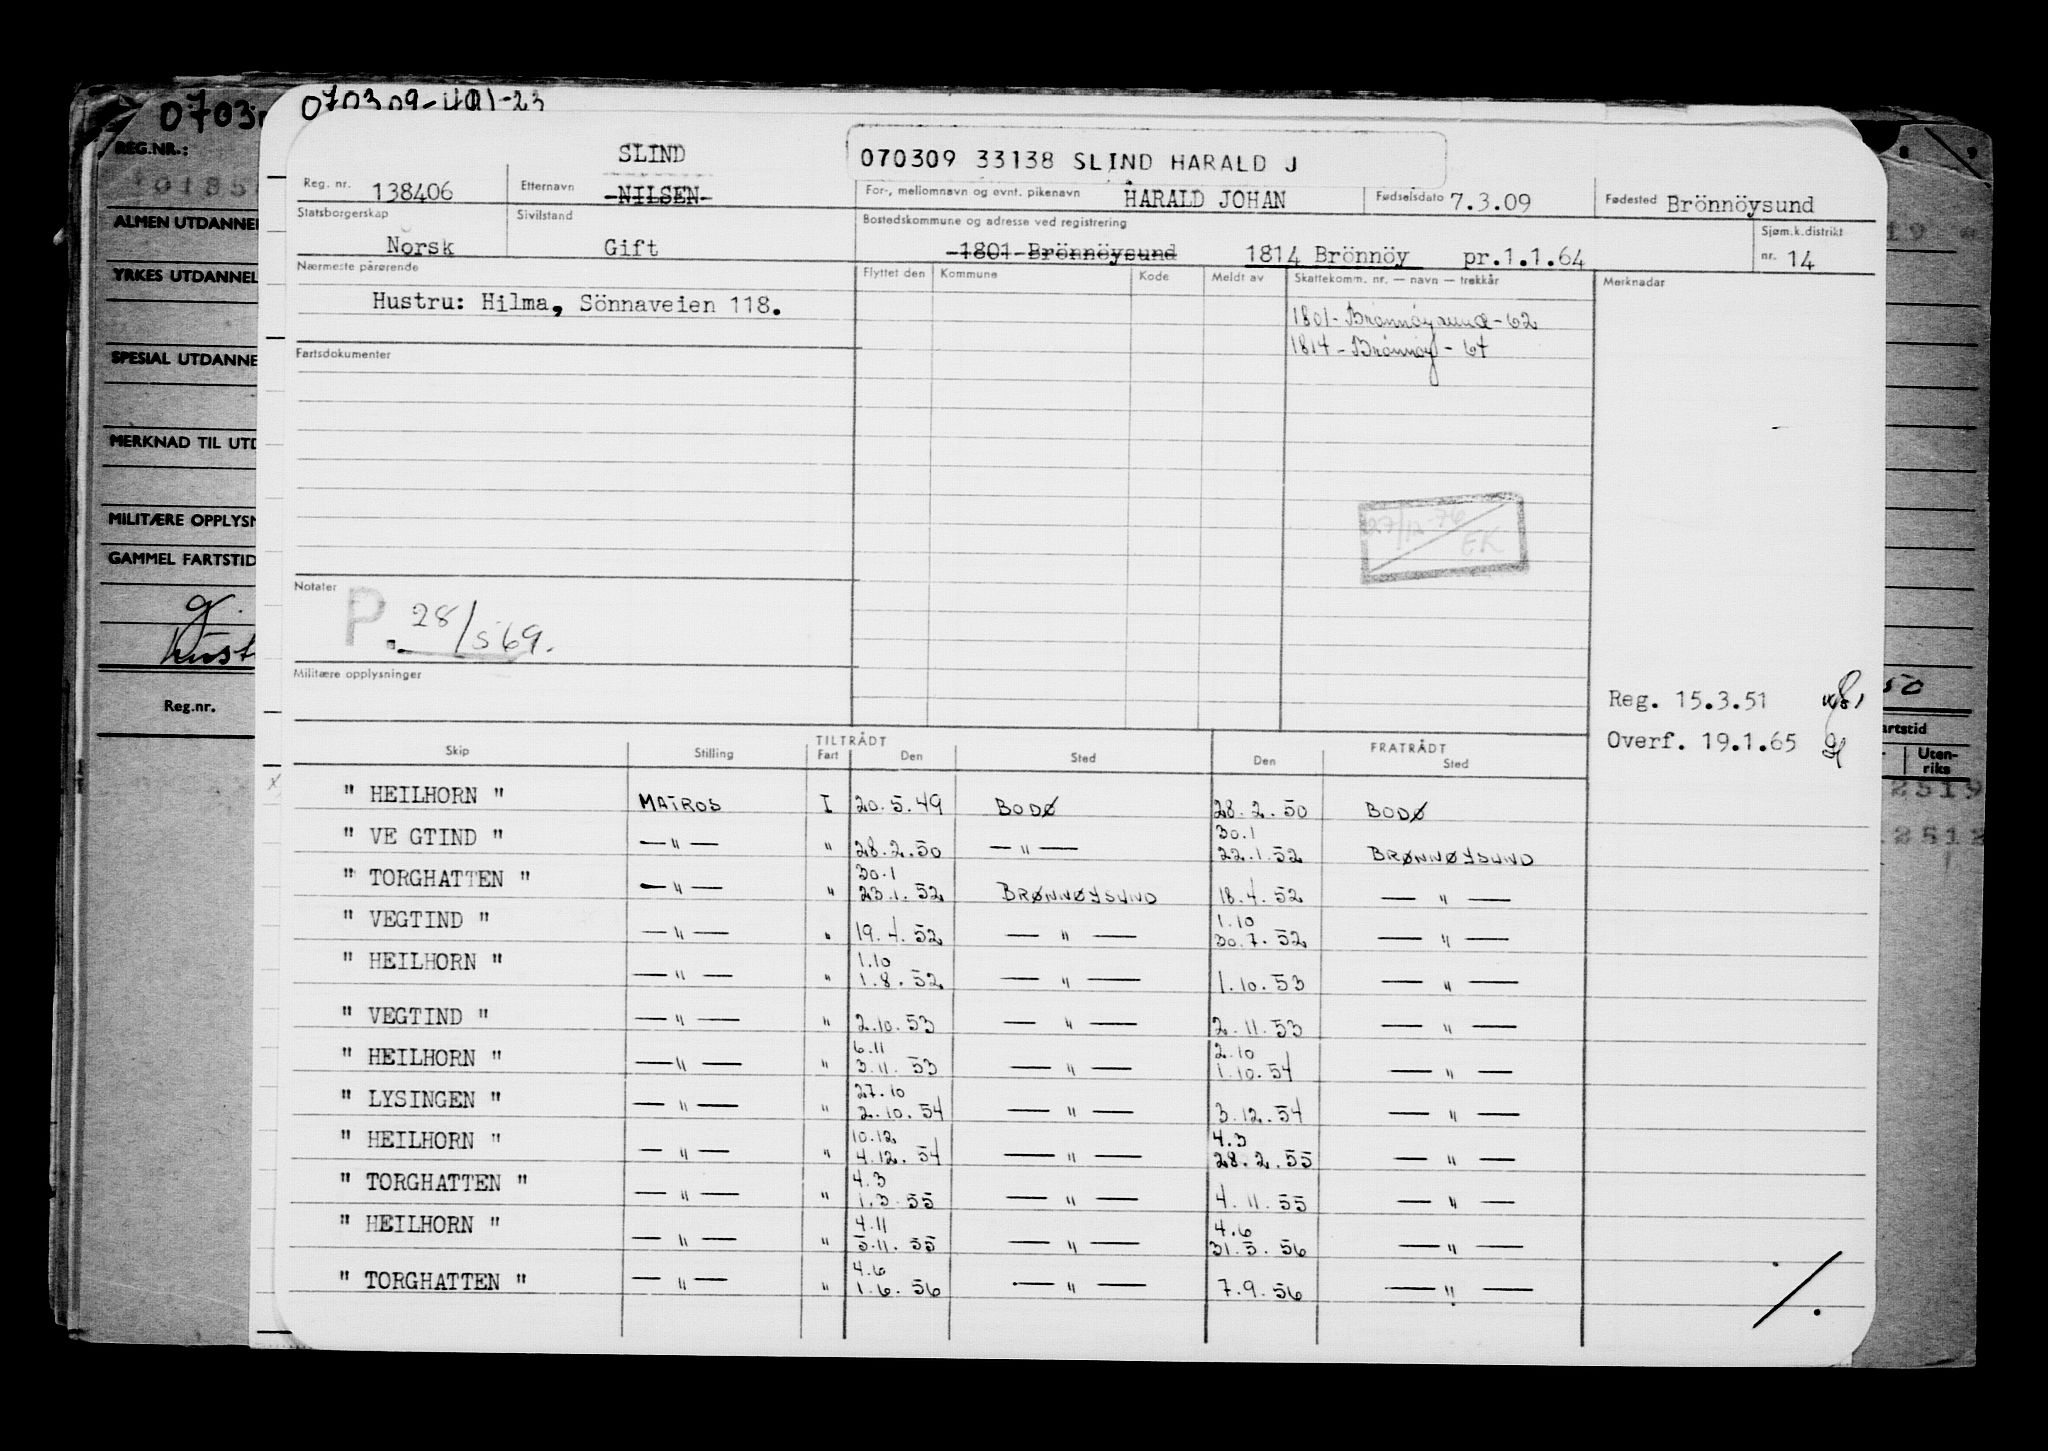 070309-401-23
SLIND
070309 33138 SLIND HARALD J
Reg. nr. 138406 Etternavn NILSEN For-, mellomnavn og evnt. pikenavn HARALD JOHAN Fødselsdato 7.3.09 Fødested Brönnöysund
Statsborgerskap Norsk Sivilstand Gift Bostedskommune og adresse ved registrering 1801 Brönnöysund 1814 Brönnöy pr.1.1.64 Sjøm.k.distrikt nr. 14
Nærmeste pårørende Flyttet den Kommune Kode Meldt av Skattekomm. nr. — navn — trekkår Merknadar
Hustru: Hilma, Sönnaveien 118.
1801- Brønnøysund - 62
1814 - Brønnøy - 64
Fartsdokumenter
27/12-76
EK
Notater
P. 28/5 69.
Militære opplysninger
Reg. 15.3.51
Overf. 19.1.65
TILTRÅDT FRATRÅDT
Skip Stilling Fart Den Sted Den Sted
" HEILHORN " MATROS I 20.5.49 BODØ 28.2.50 BODØ
30.1
" VE GTIND " — " — " 28.2.50 — " — 22.1.52 BRØNNØYSUND
30.1
" TORGHATTEN " — " — " 23.1.52 BRØNNØYSUND 18.4.52 — " —
1.10
" VEGTIND " — " — " 19.4.52 — " — 30.7.52 — " —
1.10
" HEILHORN " — " — " 1.8.52 — " — 1.10.53 — " —
" VEGTIND " — " — " 2.10.53 — " — 2.11.53 — " —
6.11 2.10
" HEILHORN " — " — " 3.11.53 — " — 1.10.54 — " —
27.10
" LYSINGEN " — " — " 2.10.54 — " — 3.12.54 — " —
10.12 4.3
" HEILHORN " — " — " 4.12.54 — " — 28.2.55 — " —
4.3
" TORGHATTEN " — " — " 1.3.55 — " — 4.11.55 — " —
4.11 4.6
" HEILHORN " — " — " 5.11.55 — " — 31.5.56 — " —
4.6
" TORGHATTEN " — " — " 1.6.56 — " — 7.9.56 — " —
0703
REG.NR.:
ALMEN UTDANNEL
YRKES UTDANNEL
SPESIAL UTDANNE
MERKNAD TIL UTD
MILITÆRE OPPLYSN
GAMMEL FARTSTID
Kyst
Reg.nr.
50
artstid
Uten-
riks
2519
2512